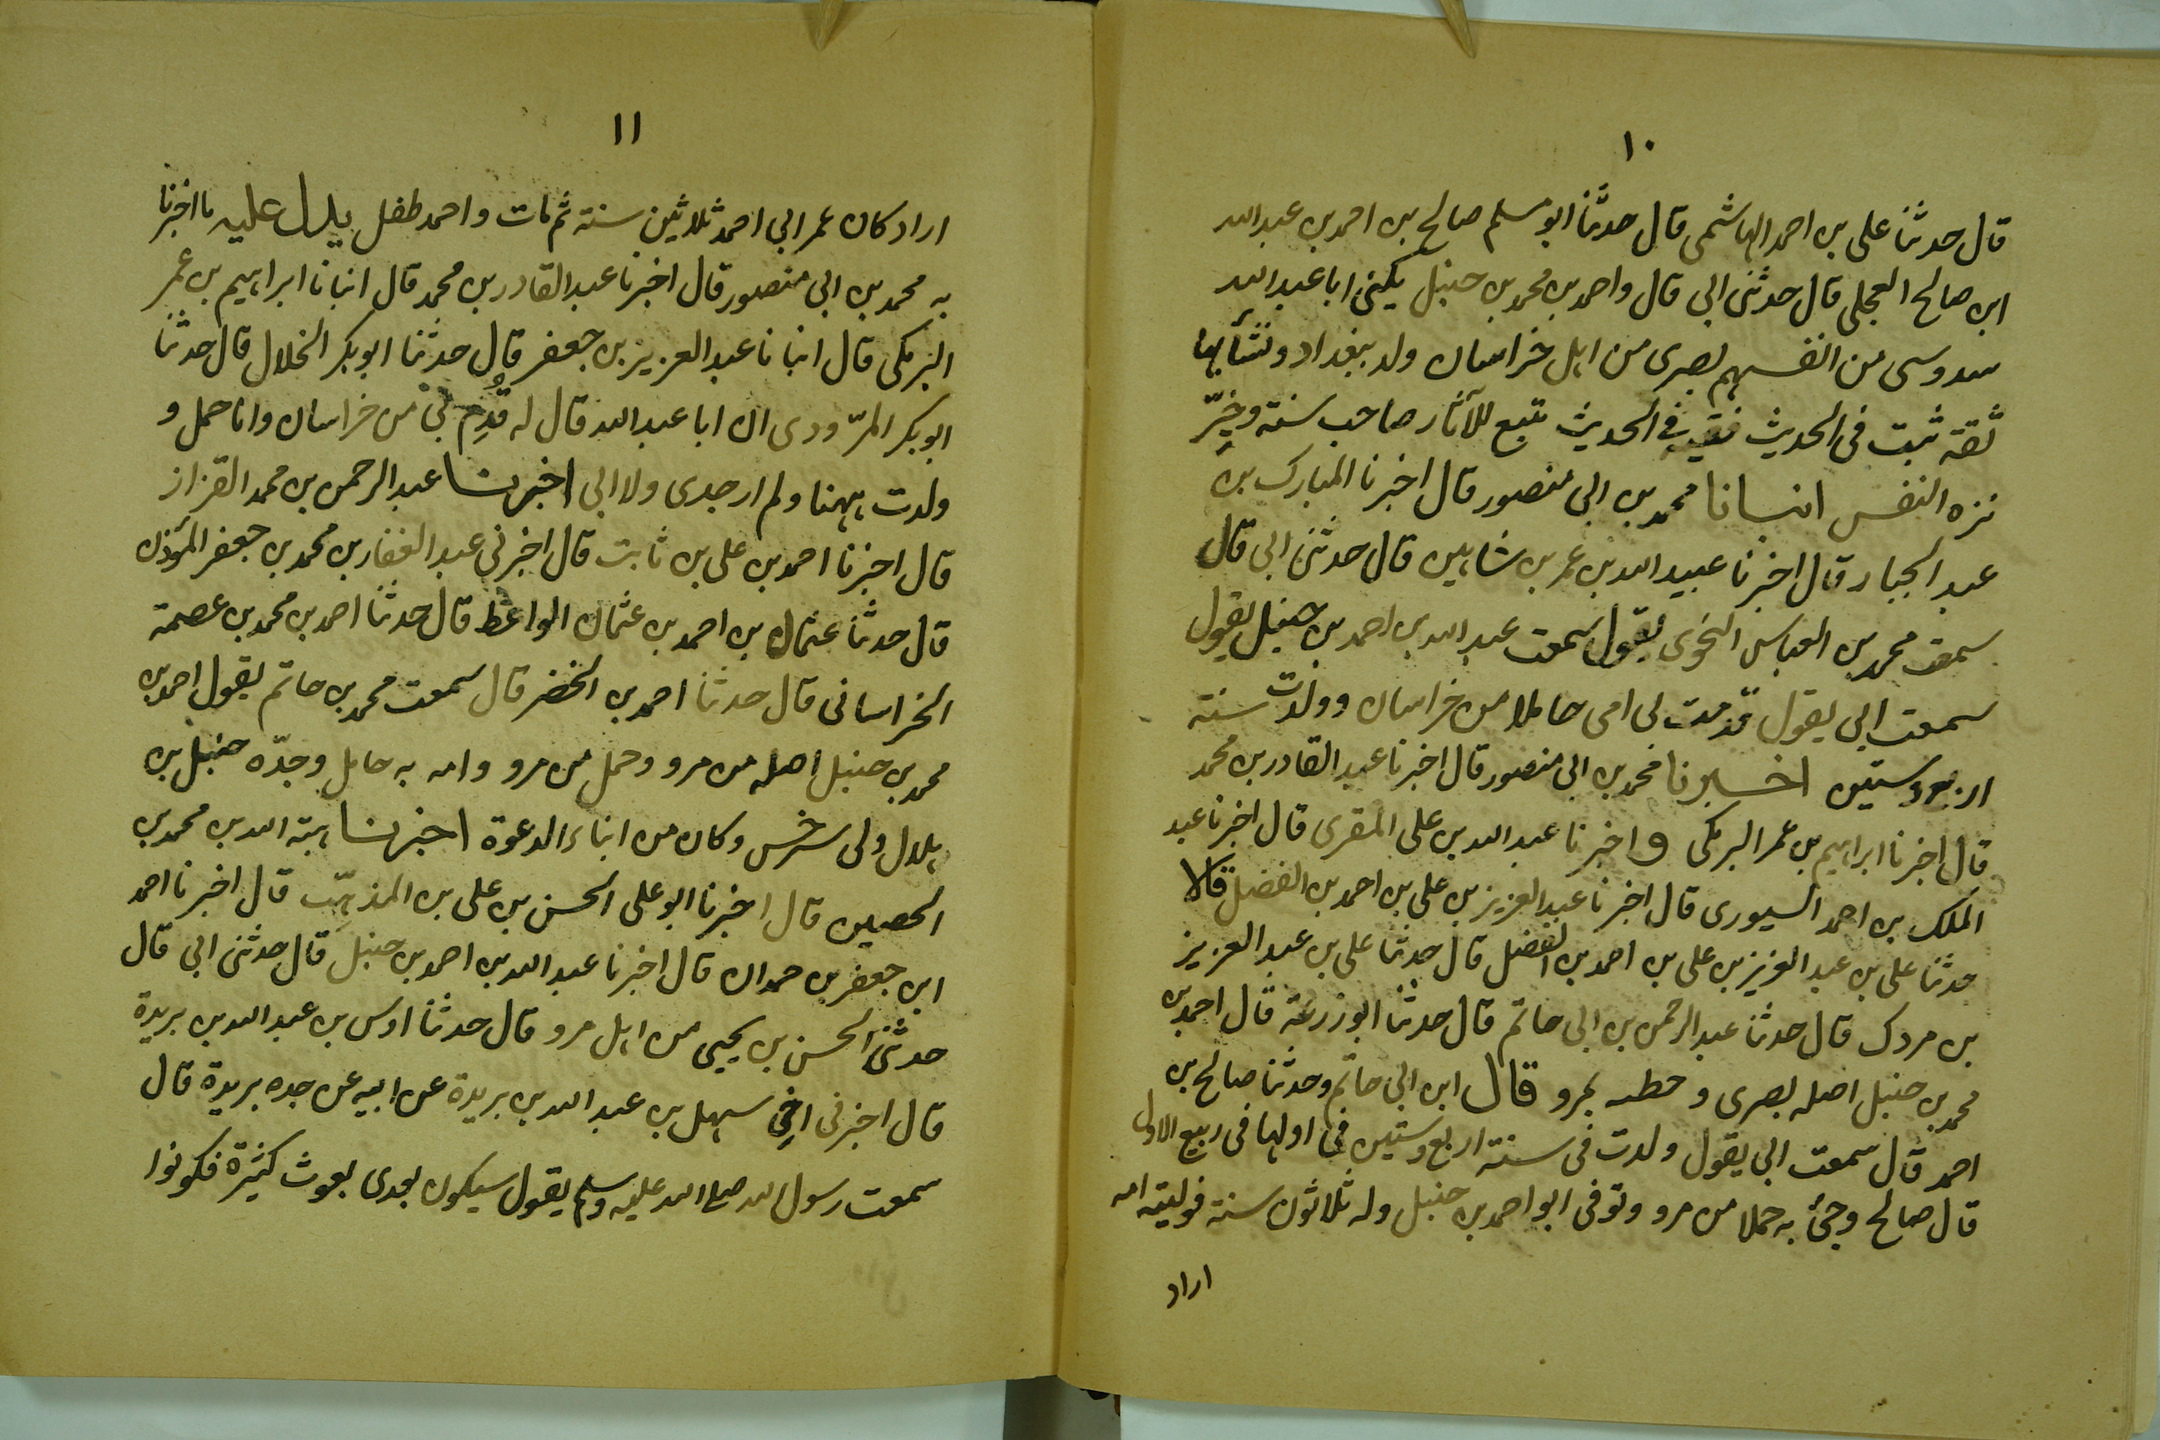 ١٠
قال حدثنا علی بن احمد الهاشمی قال حدثنا ابو مسلم صالح بن احمد بن عبد الله
ابن صالح العجلی قال حدثنی ابی قال واحمد بن محمد بن حنبل یکنی ابا عبد الله
سدوسی من انفسهم بصری من اهل خراسان ولد ببغداد ونشأبها
ثقة ثبت فی الحدیث فقیه فی الحدیث تتبع للآثار صاحب سنة وخیّر
نزه النفس انبانا محمد بن ابی منصور قال اخبرنا المبارک بن
عبد الجبار قال اخبرنا عبید الله بن عمر بن شاهین قال حدثنی ابی قال
سمعت محمد بن العباس النحوی یقول سمعت عبد الله بن احمد بن حنبل یقول
سمعت ابی یقول قدمت لی امی حاملا من خراسان وولدت سنة
اربع وستین اخبرنا محمد بن ابی منصور قال اخبرنا عبد القادر بن محمد
قال اخبرنا ابراهیم بن عمر البرمکی واخبرنا عبد الله بن علی المقری قال اخبرنا عبد
الملک بن احمد السیوری قال اخبرنا عبد العزیز بن علی بن احمد بن الفضل قالا
حدثنا علی بن عبد العزیز بن علی بن احمد بن الفضل قال حدثنا علی بن عبد العزیز
بن مردک قال حدثنا عبد الرحمن بن ابی حاتم قال حدثنا ابو زرعة قال احمد بن
محمد بن حنبل اصله بصری وخطه بمرو قال ابن ابی حاتم وحدثنا صالح بن
احمد قال سمعت ابی یقول ولدت فی سنة اربع وستین فی اولها فی ربیع الاول
قال صالح وجئ به حملا من مرو وتوفی ابو احمد بن حنبل وله ثلاثون سنة فولیته امه
اراد
١١
اراد کان عمر ابی احمد ثلاثین سنة ثم مات واحمد طفل یدل علیه ما اخبرنا
به محمد بن ابی منصور قال اخبرنا عبد القادر بن محمد قال انبانا ابراهیم بن عمر
البرمکی قال انبانا عبد العزیز بن جعفر قال حدثنا ابوبکر الخلال قال حدثنا
ابوبکر المرّودی ان ابا عبد الله قال له قُدِم بی من خراسان وانا حمل و
ولدت ههنا ولم ار جدی ولا ابی اخبرنا عبد الرحمن بن محمد القزاز
قال اخبرنا احمد بن علی بن ثابت قال اخبرنی عبد الغفار بن محمد بن جعفر المؤذن
قال حدثنا عثمان بن احمد بن عثمان الواعظ قال حدثنا احمد بن محمد بن عصمة
الخراسانی قال حدثنا احمد بن الخضر قال سمعت محمد بن حاتم یقول احمد بن
محمد بن حنبل اصله من مرو وحمل من مرو وامه به حامل وجدّه حنبل بن
هلال ولی سرخس وکان من ابناء الدعوة اخبرنا هبة الله بن محمد بن
الحصین قال اخبرنا ابو علی الحسن بن علی بن المذهّب قال اخبرنا احمد
ابن جعفر بن حمدان قال اخبرنا عبد الله بن احمد بن حنبل قال حدثنی ابی قال
حدثنی الحسن بن یحیی من اهل مرو قال حدثنا اوس بن عبد الله بن بریدة
قال اخبرنی اخی سهل بن عبد الله بن بریدة عن ابیه عن جده بریدة قال
سمعت رسول الله صلی الله علیه وسلم یقول سیکون بعدی بعوث کثیرة فکونوا